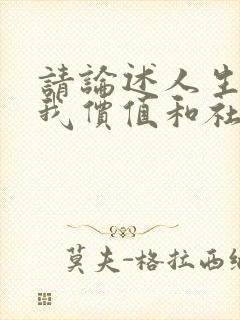 請論述人生
我價值和社
莫夫-格拉西